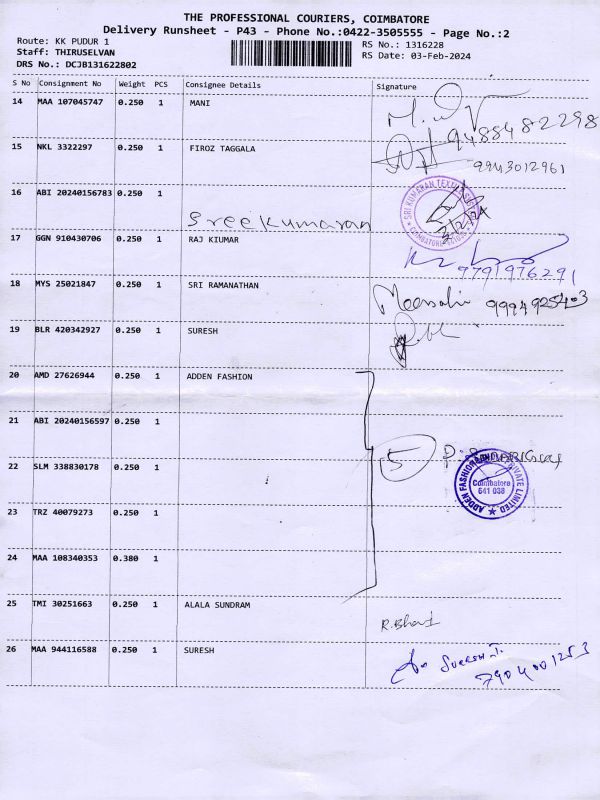 THE PROFESSIONAL COURIERS, COIMBATORE
Delivery Runsheet - P43 - Phone No.:0422-3505555 - Page No.:2
Route: KK PUDUR 1
RS No.: 1316228
Staff: THIRUSELVAN
RS Date: 03-Feb-2024
DRS No.: DCJB131622802
S No Consignment No Weight PCS Consignee Details Signature
14 MAA 107045747 0.250 1 MANI
9488482298
15 NKL 3322297 0.250 1 FIROZ TAGGALA
9943012961
16 ABI 20240156783 0.250 1
Sreekumaran
SRI KUMARAN TEXTILES
COIMBATORE
3/2/24
17 GGN 910430706 0.250 1 RAJ KIUMAR
9791976291
18 MYS 25021847 0.250 1 SRI RAMANATHAN
19 BLR 420342927 0.250 1 SURESH
20 AMD 27626944 0.250 1 ADDEN FASHION
21 ABI 20240156597 0.250 1
5
22 SLM 338830178 0.250 1
ADDEN FASHIONS PRIVATE LIMITED
Coimbatore
641 038
23 TRZ 40079273 0.250 1
24 MAA 108340353 0.380 1
25 TMI 30251663 0.250 1 ALALA SUNDRAM
R.Bharat
26 MAA 944116588 0.250 1 SURESH
Suresh
7904001253